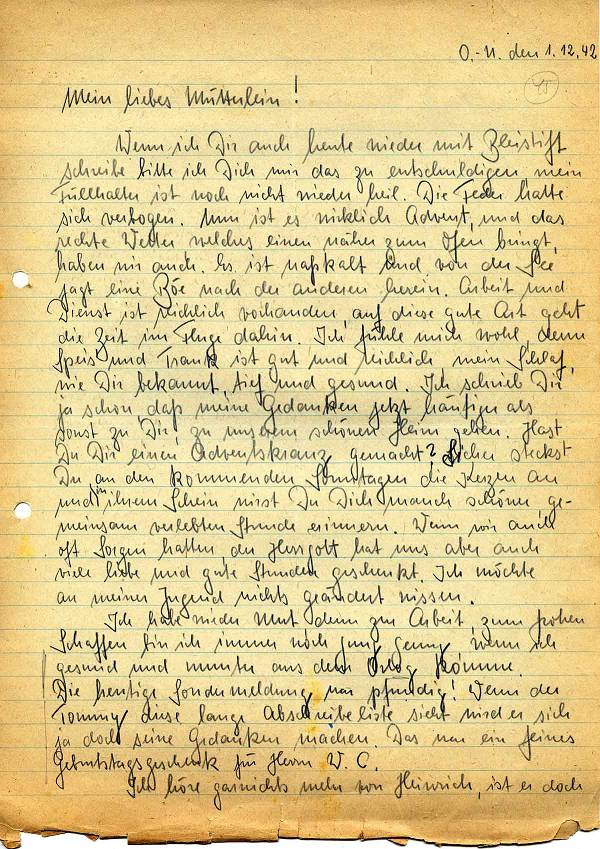 O.-U. den 1.12.42
45
Mein liebes Mütterlein!
Wenn ich Dir auch heute wieder mit Bleistift
schreibe bitte ich Dich mir das zu entschuldigen, mein
Füllhalter ist noch nicht wieder heil. Die Feder hatte
sich verbogen. Nun ist es wirklich Advent, und das
rechte Wetter welches einen näher zum Ofen bringt,
haben wir auch. Es ist naßkalt und von der See
jagt eine Böe nach der anderen herein. Arbeit und
Dienst ist reichlich vorhanden, auf diese gute Art geht
die Zeit im Fluge dahin. Ich fühle mich wohl, denn
Speis und Trank ist gut und reichlich mein Schlaf,
wie Dir bekannt, tief und gesund. Ich schrieb Dir
ja schon daß meine Gedanken jetzt häufiger als
sonst zu Dir, zu unserem schönen Heim gehen. Hast
Du Dir einen Adventskranz gemacht? Sicher steckst
Du an den kommenden Sonntagen die Kerzen an
und in ihrem Schein wirst Du Dich manch schöner, ge-
meinsam verlebten Stunde erinnern. Wenn wir auch
oft Sorgen hatten der Herrgott hat uns aber auch
viele liebe und gute Stunden geschenkt. Ich möchte
an meiner Jugend nichts geändert wissen.
Ich habe wieder Mut denn zur Arbeit, zum frohen
Schaffen bin ich immer noch jung genug wenn ich
gesund und munter aus dem Krieg komme.
Die heutige Sondermeldung war pfundig! Wenn der
Tommy diese lange Abschreibeliste sieht wird er sich
ja doch seine Gedanken machen. Das war ein feines
Geburtstagsgeschenk für Herrn W. C.
Ich höre garnichts mehr von Heinrich, ist es doch